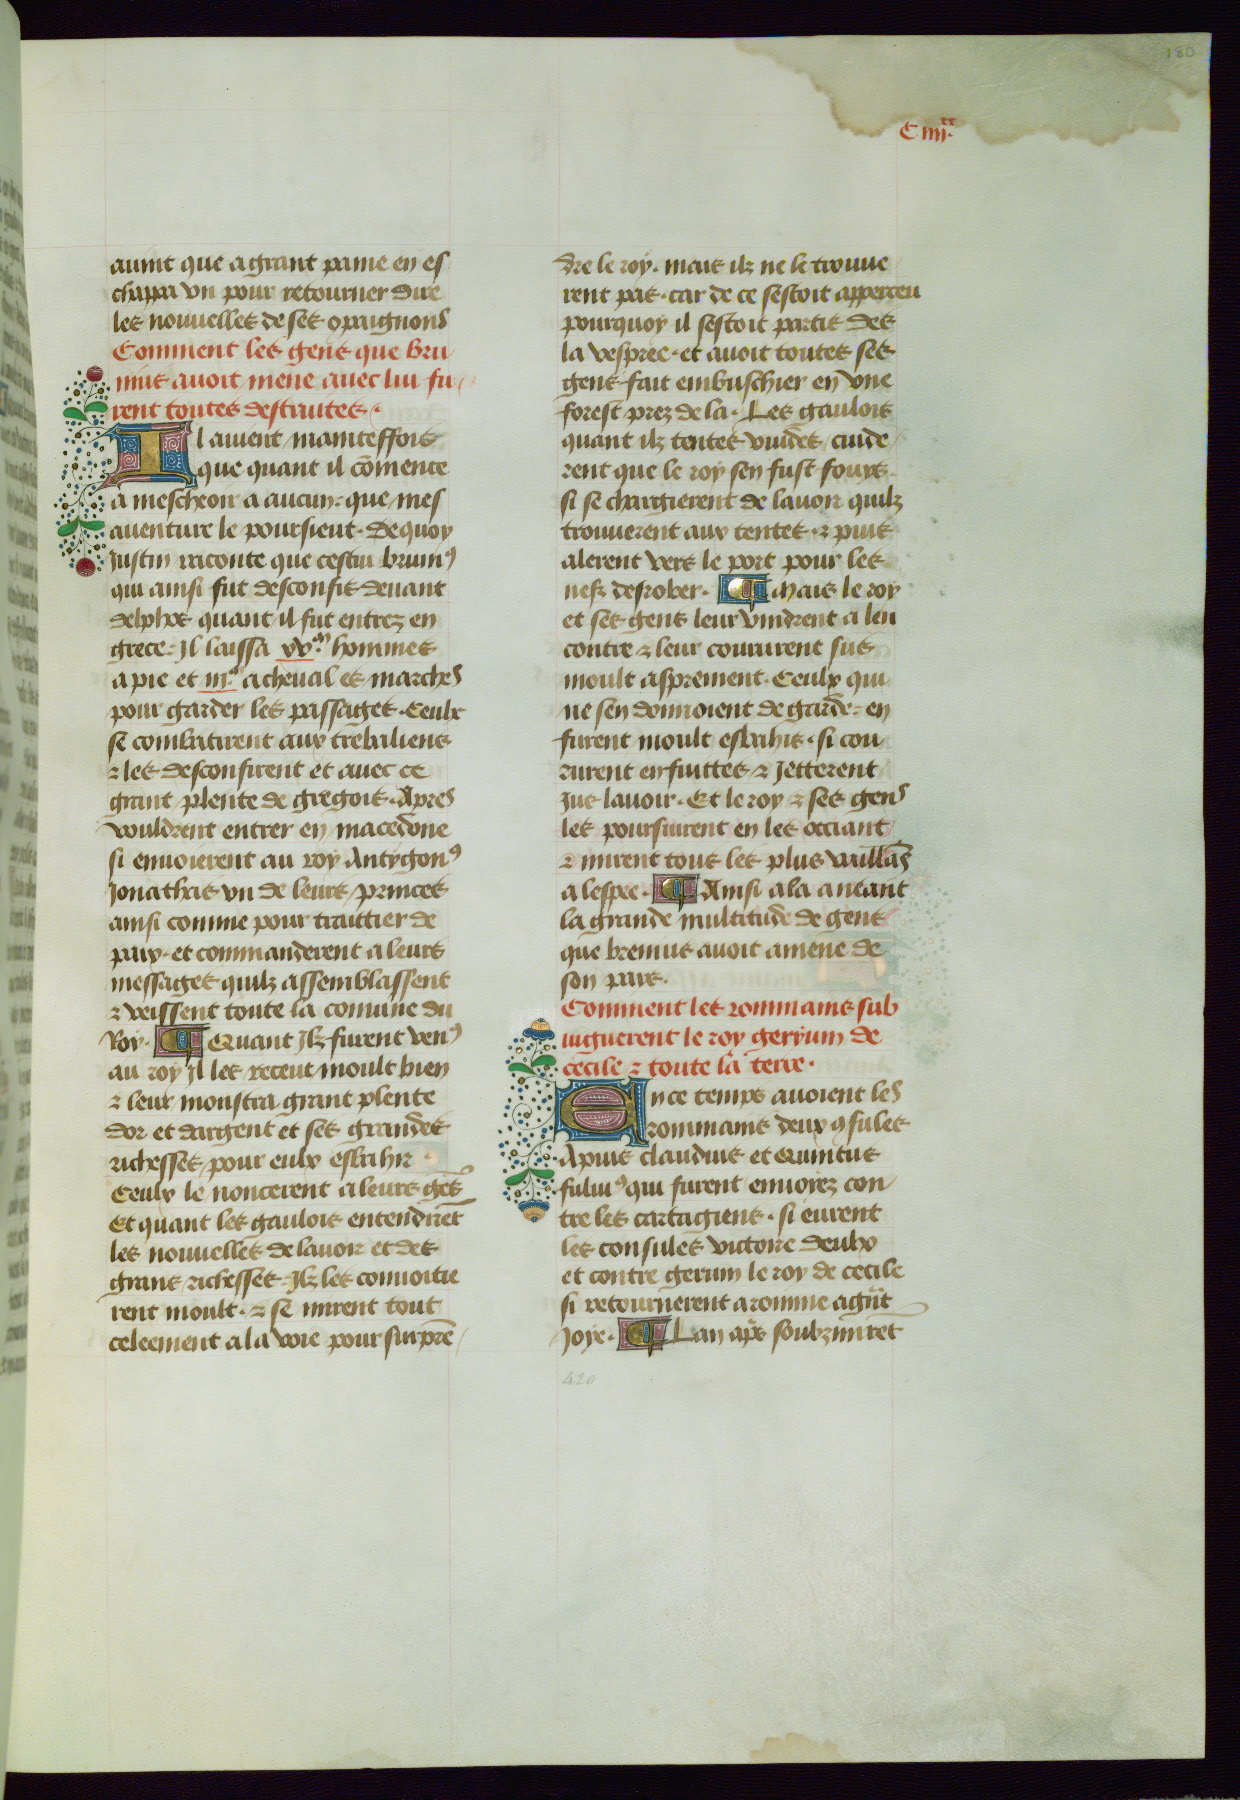 180
C iiii xx.
auint que a grant paine en es
chappa vn pour retourner dire
les nouuelles de ses 9paignons
Comment les gens que bru
nius auoit mene auec lui fu
rent toutes destruites.
Il auient maintesffois
que quant il cõmence
a mescheoir a aucun. que mes
auenture le poursieut. De quoy
Justin raconte que cestui brunꝰ
qui ainsi fut desconfit deuant
delphos quant il fut entrez en
grece. Il laissa xv.m hommes
a pie et iii.m a cheual es marches
pour garder les passages. Ceulx
se combatirent aux trebaliens
⁊ les desconfirent et auec ce
grant plente de gregois. Apres
vouldrent entrer en macedone
si enuoierent au roy Antygonꝰ
Jonathas vn de leurs princes
ainsi comme pour traittier de
paix. et commanderent a leurs
messages quilz assemblassent
⁊ veissent toute la comune du
Roy. Quant Ilz furent venꝰ
au roy Il les receut moult bien
⁊ leur monstra grant plente
dor et dargent et ses grandes
richesses pour eulx esbahir
Ceulx le noncerent a leurs gẽs
Et quant les gaulois entendirẽt
les nouuelles de lauoir et des
grans richesses. Ilz les conuoitie
rent moult. ⁊ se mirent tout
celeement a la voie pour surprẽ
dre le roy. mais ilz ne le trouue
rent pas. car de ce sestoit apperceu
pourquoy il sestoit partis des
la vespree. et auoit toutes ses
gens fait embuschier en vne
forest prez de la. Les gaulois
quant ilz tentes vuides cuide
rent que le roy sen fust fouys.
si se chargierent de lauoir quilz
trouuerent aux tentes. ⁊ puis
alerent vers le port pour les
nefz desrober. Mais le roy
et ses gens leur vindrent a len
contre ⁊ leur coururent sus
moult asprement. Ceulx qui
ne sen donnoient de garde. en
furent moult esbahis. si cou
rurent en fuittes ⁊ Jetterent
Jus lauoir. Et le roy ⁊ ses gens
les poursiurent en les occiant
⁊ mirent tous les plus vaillãs
a lespee. Ainsi ala a neant
la grande multitude de gens
que brenius auoit amene de
son pais.
Comment les rommains sub
iuguerent le roy geryum de
cecile ⁊ toute la terre.
En ce temps auoient les
rommains deux 9sules
Apius claudius et Quintus
fuluiꝰ qui furent enuoyez con
tre les cartagiens. si eurent
les consules victoire deulx
et contre gerium le roy de cecile
si retournerent a romme a grãt
Joye. Lan apẽs soubzmirẽt
420